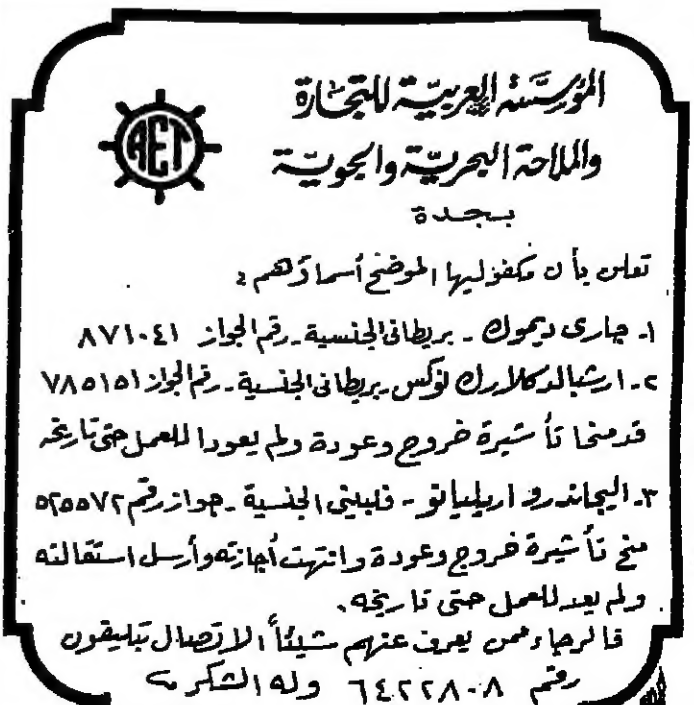 المؤسسة العربية للتجارة
AET
والملاحة البحرية والجوية
بجدة
تعلن بأن مكفوليها الموضح أسماؤهم :
١ـ جارى ديموك ـ بريطانى الجنسية ـ رقم الجواز ٨٧١٠٤١
٢ـ ارشبالد كلارك نوكس ـ بريطانى الجنسية ـ رقم الجواز ٧٨٥١٥١
قد منحا تأشيرة خروج وعودة ولم يعودا للعمل حتى تاريخه
٣ـ اليجاندرو اريليانو ـ فلبينى الجنسية ـ جواز رقم ٥٢٥٥٧٢
منح تأشيرة خروج وعودة وانتهت أجازته وأرسل استقالته
ولم يعد للعمل حتى تاريخه.
فالرجاء ممن يعرف عنهم شيئاً الاتصال بتليفون
رقم ٦٤٢٢٨٠٨ وله الشكر